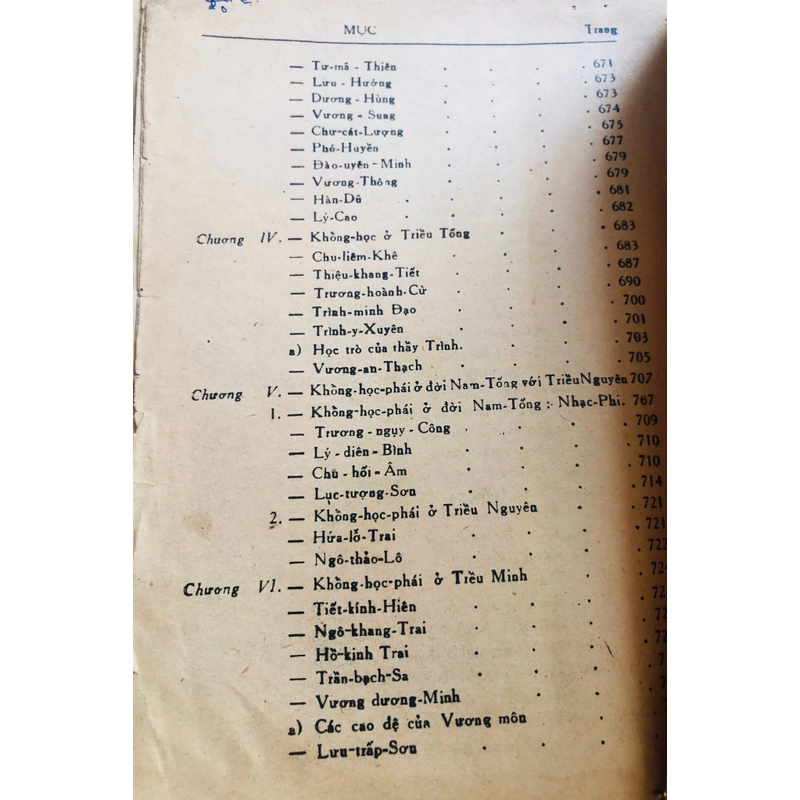 MỤC Trang
— Tư-mã - Thiên . . . . 671
— Lưu - Hướng . . . . 673
— Dương - Hùng . . . . 673
— Vương - Sung . . . . 674
— Chư-cát-Lượng . . . . 675
— Phó-Huyền . . . . 677
— Đào-uyên - Minh . . . . 679
— Vương-Thông . . . . 679
— Hàn-Dũ . . . . 681
— Lý-Cao . . . . 682
Chương IV. — Khồng-học ở Triều Tống . . . 683
— Chu-liêm-Khê . . . . 683
— Thiệu-khang-Tiết . . . . 687
— Trương-hoành-Cừ . . . . 690
— Trình-minh Đạo . . . . 700
— Trình-y-Xuyên . . . . 701
a) Học trò của thầy Trình. . . . 703
— Vương-an-Thạch . . . . 705
Chương V. — Khồng-học-phái ở đời Nam-Tống với Triều Nguyên 707
1. — Khồng-học-phái ở đời Nam-Tống ; Nhạc-Phi. 707
— Trương-ngụy-Công . . . . 709
— Lý-diên-Bình . . . . 710
— Chu-hối-Âm . . . . 710
— Lục-tượng-Sơn . . . . 714
2. — Khồng-học-phái ở Triều Nguyên . . . 721
— Hứa-lỗ-Trai . . . . 721
— Ngô-thảo-Lô . . . .
Chương VI. — Khồng-học-phái ở Triều Minh . . .
— Tiết-kính-Hiên . . . .
— Ngô-khang-Trai . . . .
— Hồ-kinh Trai . . . .
— Trần-bạch-Sa . . . .
— Vương dương-Minh . . .
a) Các cao đệ của Vương môn . .
— Lưu-trấp-Sơn . . .